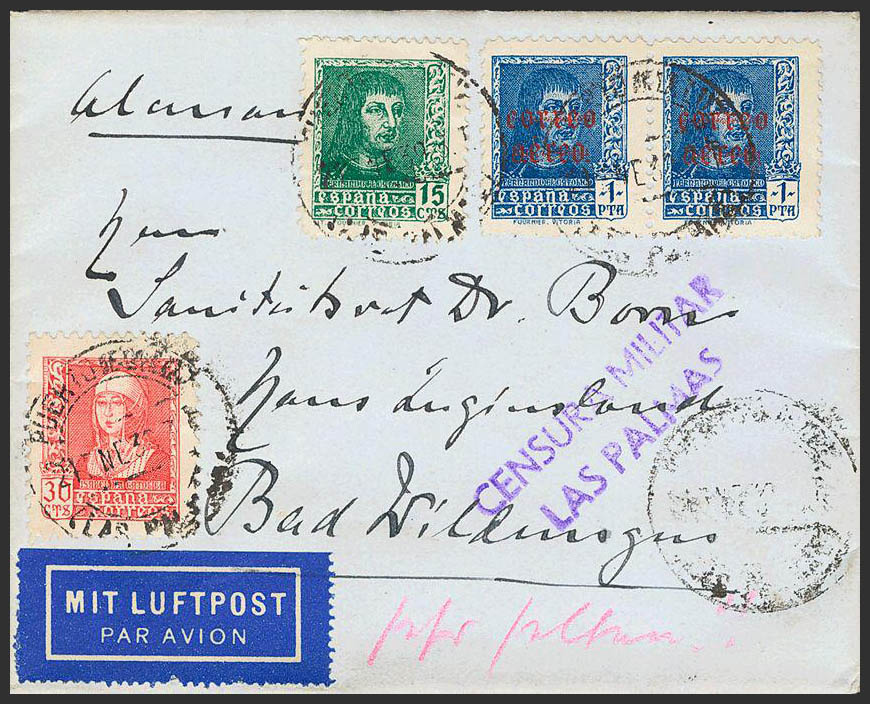 15
CTS
FERNANDO EL CATOLICO
españa
correos
correo
aéreo
-1-
PTA
FERNANDO EL CATOLICO
españa
correos
FOURNIER. VITORIA
correo
aéreo
-1-
PTA
FERNANDO EL CATOLICO
españa
correos
FOURNIER. VITORIA
Herrn
Sanitätsrat Dr. Born
Haus Luginsland
Bad Wildungen
CENSURA MILITAR
LAS PALMAS
30
CTS
ISABEL LA CATOLICA
españa
correos
LAS PALMAS
MIT LUFTPOST
PAR AVION